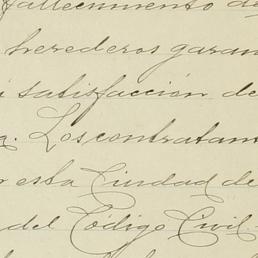 fallecimiento de
herederos garan
i satisfacción de
a. Los contratan
r esta Ciudad de
del Código Civil